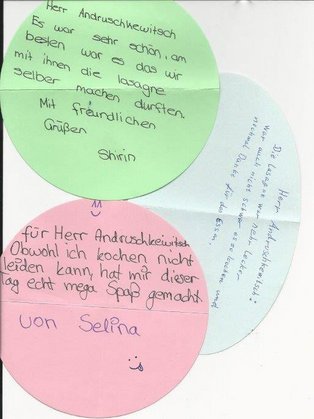 Herr Andruschkewitsch
Es war sehr schön, am
besten war es das wir
mit ihnen die lasagne
selber machen durften.
Mit freundlichen
Grüßen
Shirin
Herr Andruschkewitsch:
Die lasagne war sehr lecker
war auch nicht schwer
nochmal Danke für das Essen
für Herr Andruschkeiwitsch
Obwohl ich kochen nicht
leiden kann, hat mir dieser
Tag echt mega Spaß gemacht
von Selina